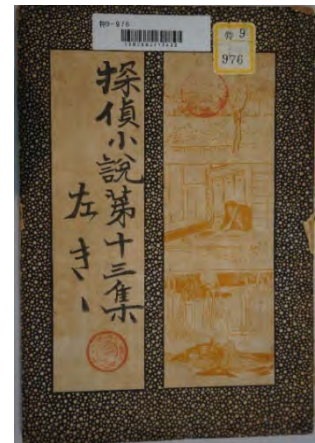 特9-976
特 9
976
探偵小説第十三集
左きゝ